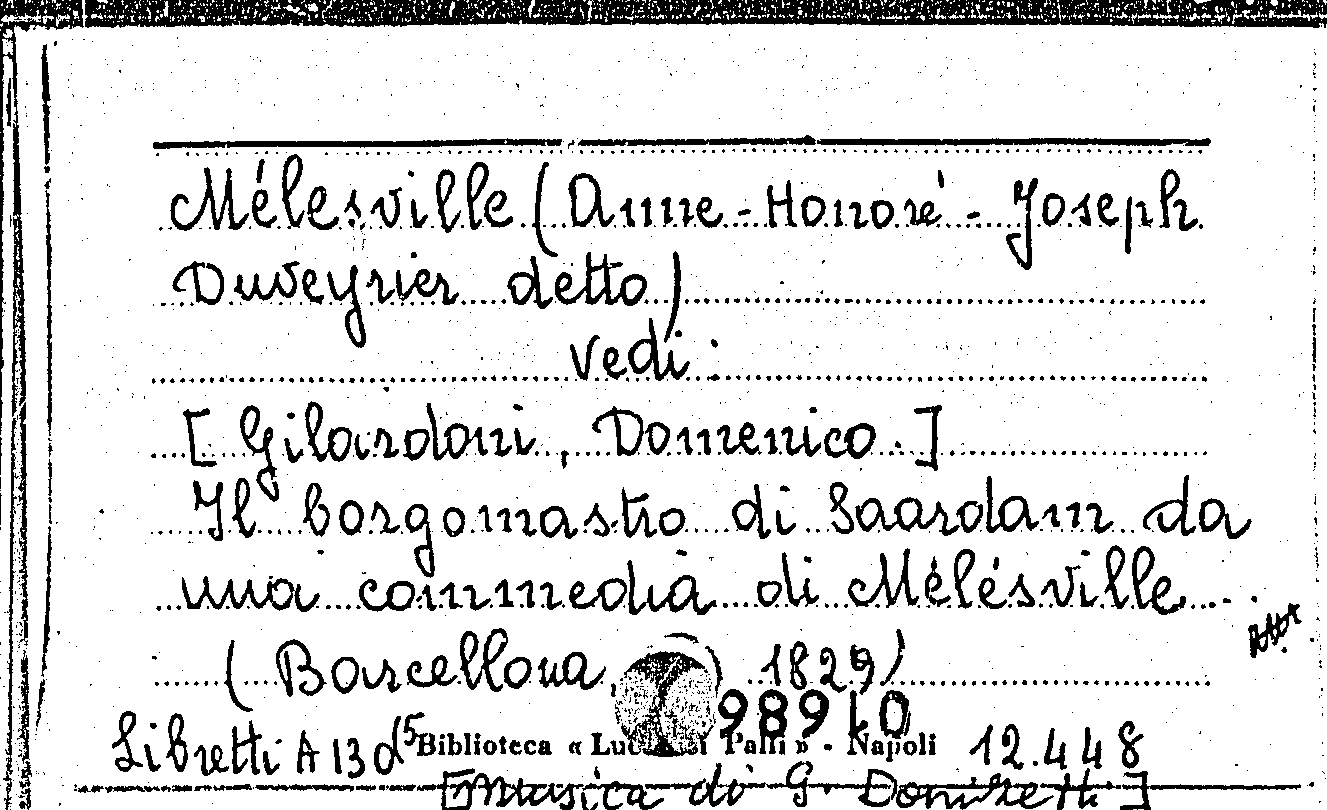 Mélesville (Anne-Honoré-Joseph
Duveyrier detto)
vedi:
[Gilardoni, Domenico.]
Il borgomastro di Saardam da
una commedia di Mélésville...
(Barcellona, 1829)
98910
Libretti A 130(5 Biblioteca « Lucchesi Palli » - Napoli 12.448
[Musica di G. Donizetti]